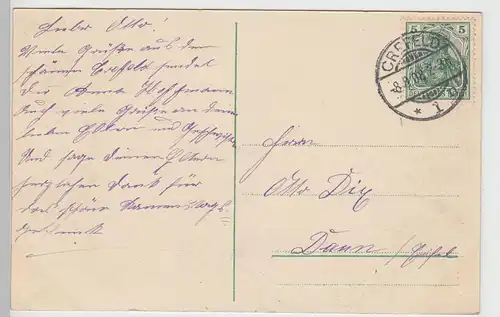 Lieber Otto!
Viele Grüße aus dem
schönen Crefeld sendet
Dir Anna Hoffmann
Auch viele Grüße an deine
lieben Eltern und Geschwister
Und sage deinen Eltern
herzlichen Dank für
das schöne Namenstags-
geschenk
5 5
CREFELD
* 1
Herrn
Otto Dix
Daun /Eifel